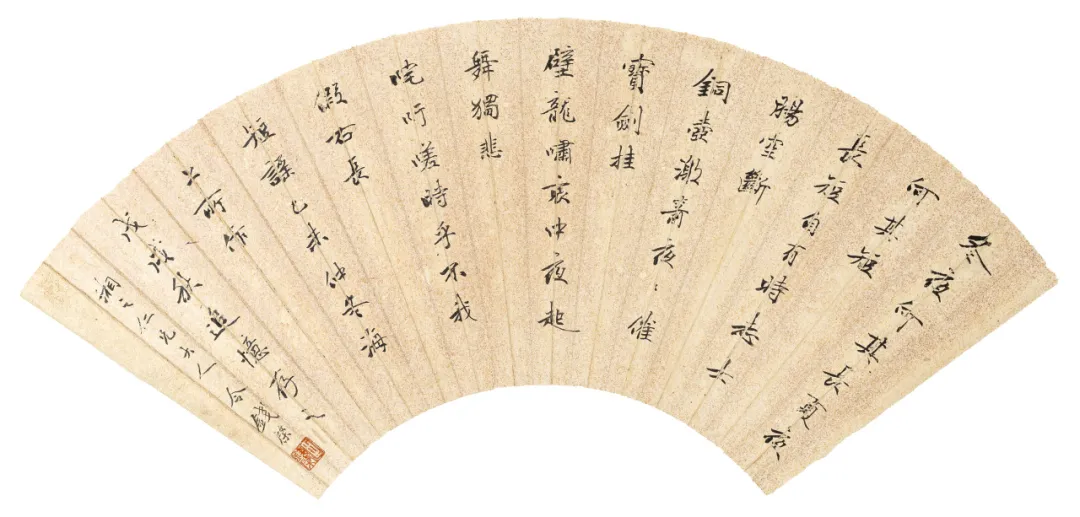 冬夜何其長夏夜
何其短
長短自有時志士
腸空斷
銅壺夜〻催
寶劍挂
壁龍嘯哀仲夜起
舞獨悲
咤吁嗟時乎不我
假右長
短謠己未仲冬海
上所作
戊戌秋追憶存之
湘之仁兄大人令錢